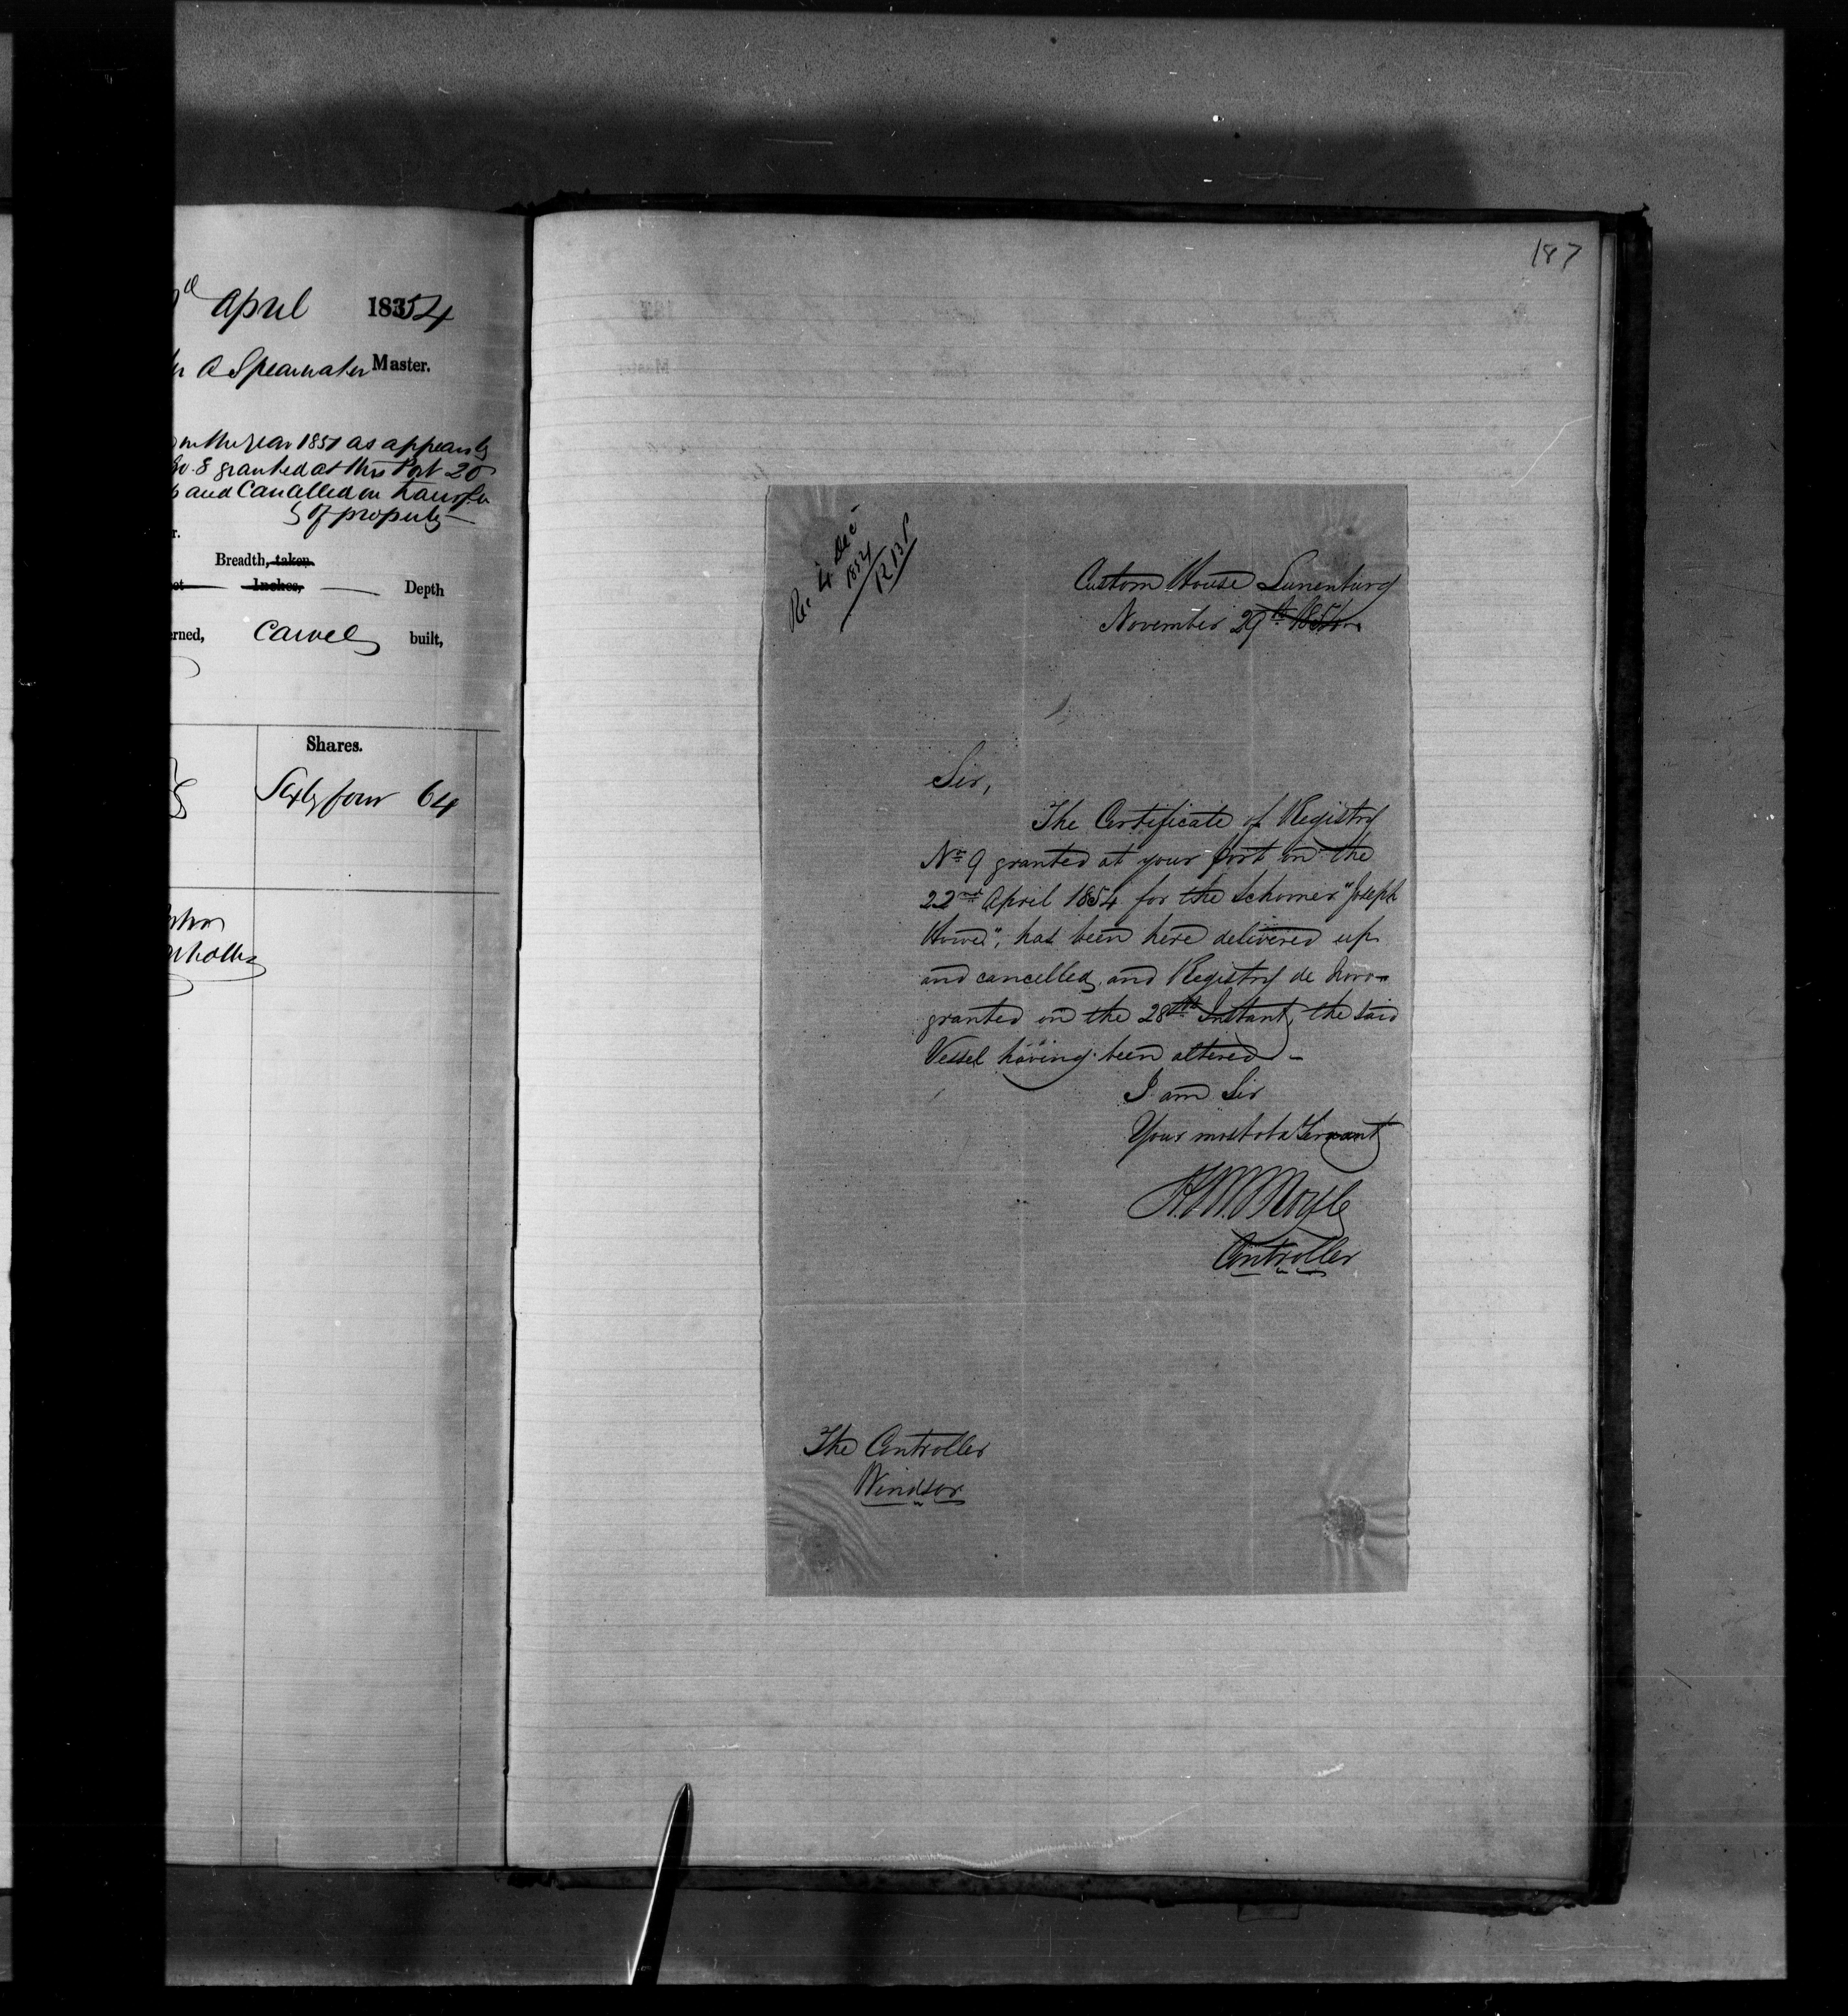 April 1854
A Spearwater Master.
in the year 1851 as appears by
No. 8 granted at this Port 20
and Cancelled on transfer
of property
Breadth, taken
Inches, Depth
Carvel built,
Shares.
Sixty four 64
187
Rec. 4 Dec
1854
Custom House Lunenburg
November 29th 1854
Sir,
The Certificate of Registry
No 9 granted at your port on the
22nd April 1854 for the Schooner "Joseph
Howe", has been here delivered up
and cancelled, and Registry de Novo
granted on the 28th Instant, the said
Vessel having been altered –
I am Sir
Your most obt Servant
Controller
The Controller
Windsor